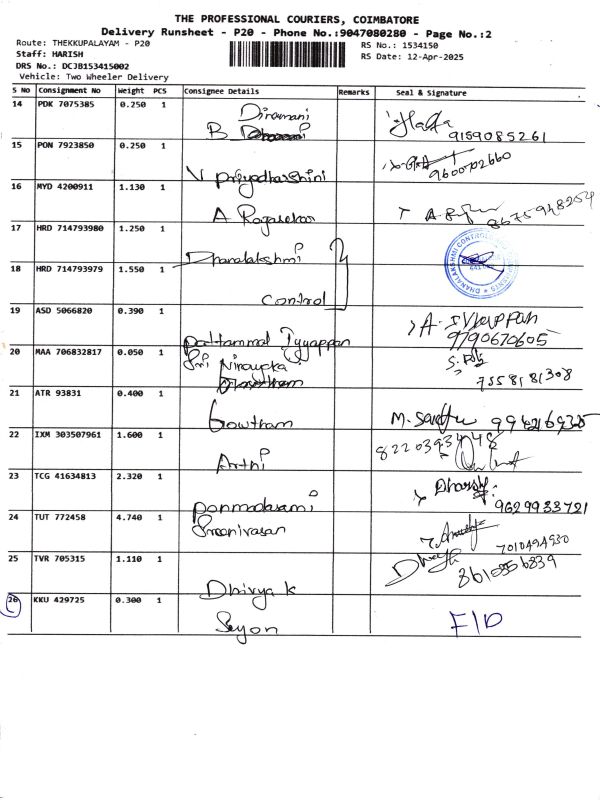 THE PROFESSIONAL COURIERS, COIMBATORE
Delivery Runsheet - P20 - Phone No.:9047080280 - Page No.:2
Route: THEKKUPALAYAM - P20
RS No.: 1534150
Staff: HARISH
RS Date: 12-Apr-2025
DRS No.: DCJB153415002
Vehicle: Two Wheeler Delivery
S No Consignment No Weight PCS Consignee Details Remarks Seal & Signature
14 PDK 7075385 0.250 1
B 9159085261
15 PON 7923850 0.250 1
V priyadharshini 9600702660
16 MYD 4200911 1.130 1
A Rajasekar
17 HRD 714793980 1.250 1
Dhanalakshmi
18 HRD 714793979 1.550 1
Control
19 ASD 5066820 0.390 1
pattammal Iyyappan 9790670605
20 MAA 706832817 0.050 1
Sri 7558181308
21 ATR 93831 0.400 1
Gowtham
22 IXM 303507961 1.600 1
Arthi
23 TCG 41634813 2.320 1
ponmadasami 9629933721
24 TUT 772458 4.740 1
Sreenivasan 7010494930
25 TVR 705315 1.110 1
Dhivya k
26 KKU 429725 0.300 1
Seyon F/D